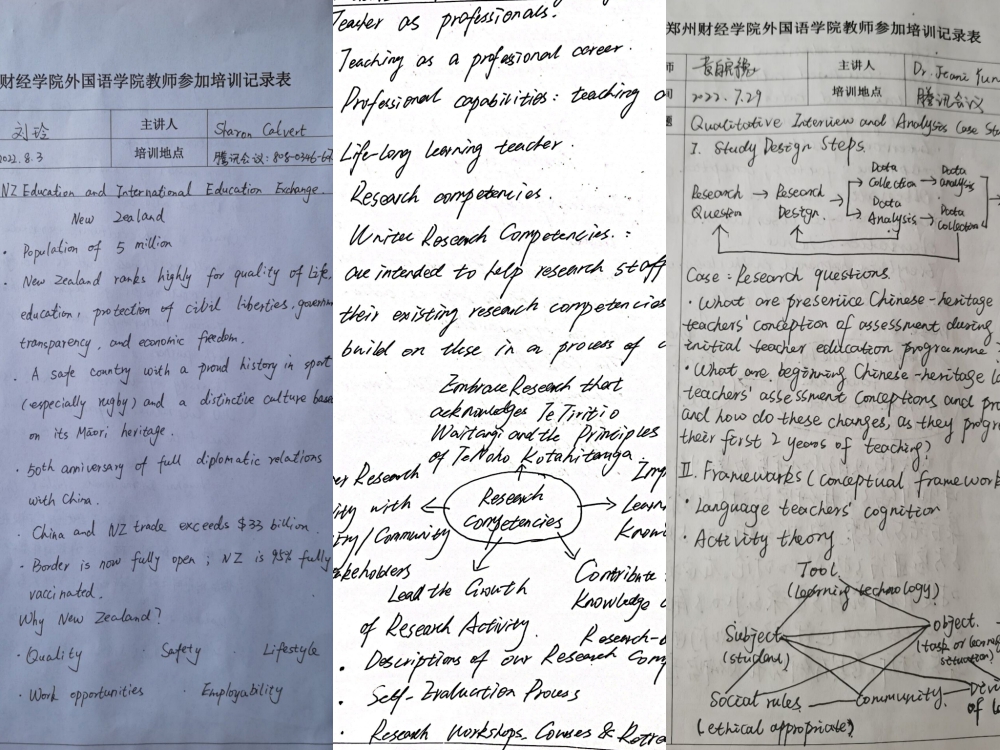 财经学院外国语学院教师参加培训记录表
刘玲 主讲人 Sharon Calvert
2022.8.3 培训地点 腾讯会议: 808-0346-
NZ Education and International Education Exchange.
New Zealand
· Population of 5 million
· New Zealand ranks highly for quality of life,
education, protection of civil liberties, governm
transparency, and economic freedom.
· A safe country with a proud history in sport
(especially rugby) and a distinctive culture base
on its Māori heritage.
· 50th anniversary of full diplomatic relations
with China.
· China and NZ trade exceeds $33 billion.
· Border is now fully open; NZ is 95% fully
vaccinated.
Why New Zealand?
· Quality · Safety · Lifestyle
· Work opportunities · Employability
Teacher as professionals.
Teaching as a professional career.
Professional capabilities: teaching
Life-long learning teacher.
Research competencies.
Unitec Research Competencies.:
are intended to help research staff
their existing research competencies
build on these in a process of
Embrace Research that
acknowledges Te Tiriti o
Waitangi and the Principles
of Te Noho Kotahitanga.
er Research
ity with
try/Community
keholders
Research
Competencies
Imp
Learn
Know
Lead the Growth
of Research Activity.
Contribute
Knowledge
Research-
· Descriptions of our Research Com
· Self-Evaluation Process
· Research Workshops, Courses & Retre
郑州财经学院外国语学院教师参加培训记录表
师 主讲人 Dr. Jeani Yun
间 2022.7.29 培训地点 腾讯会议
题 Qualitative Interview and Analysis Case St
I. Study Design Steps.
Research
Question
→ Research
Design.
Data
Collection → Data
analysis
Data
Analysis → Data
Collection
Case: Research questions.
· What are preservice Chinese-heritage
teachers' conception of assessment during
initial teacher education programme?
· What are beginning Chinese-heritage la
teachers' assessment conceptions and pra
and how do these changes, as they progr
their first 2 years of teaching)
II. Frameworks (conceptual framework
· Language teachers' cognition
· Activity theory.
Tool
(Learning technology)
Subject
(student)
object.
(task or
situation)
Social rules
(ethical appropricate)
Community.
Divi
of L